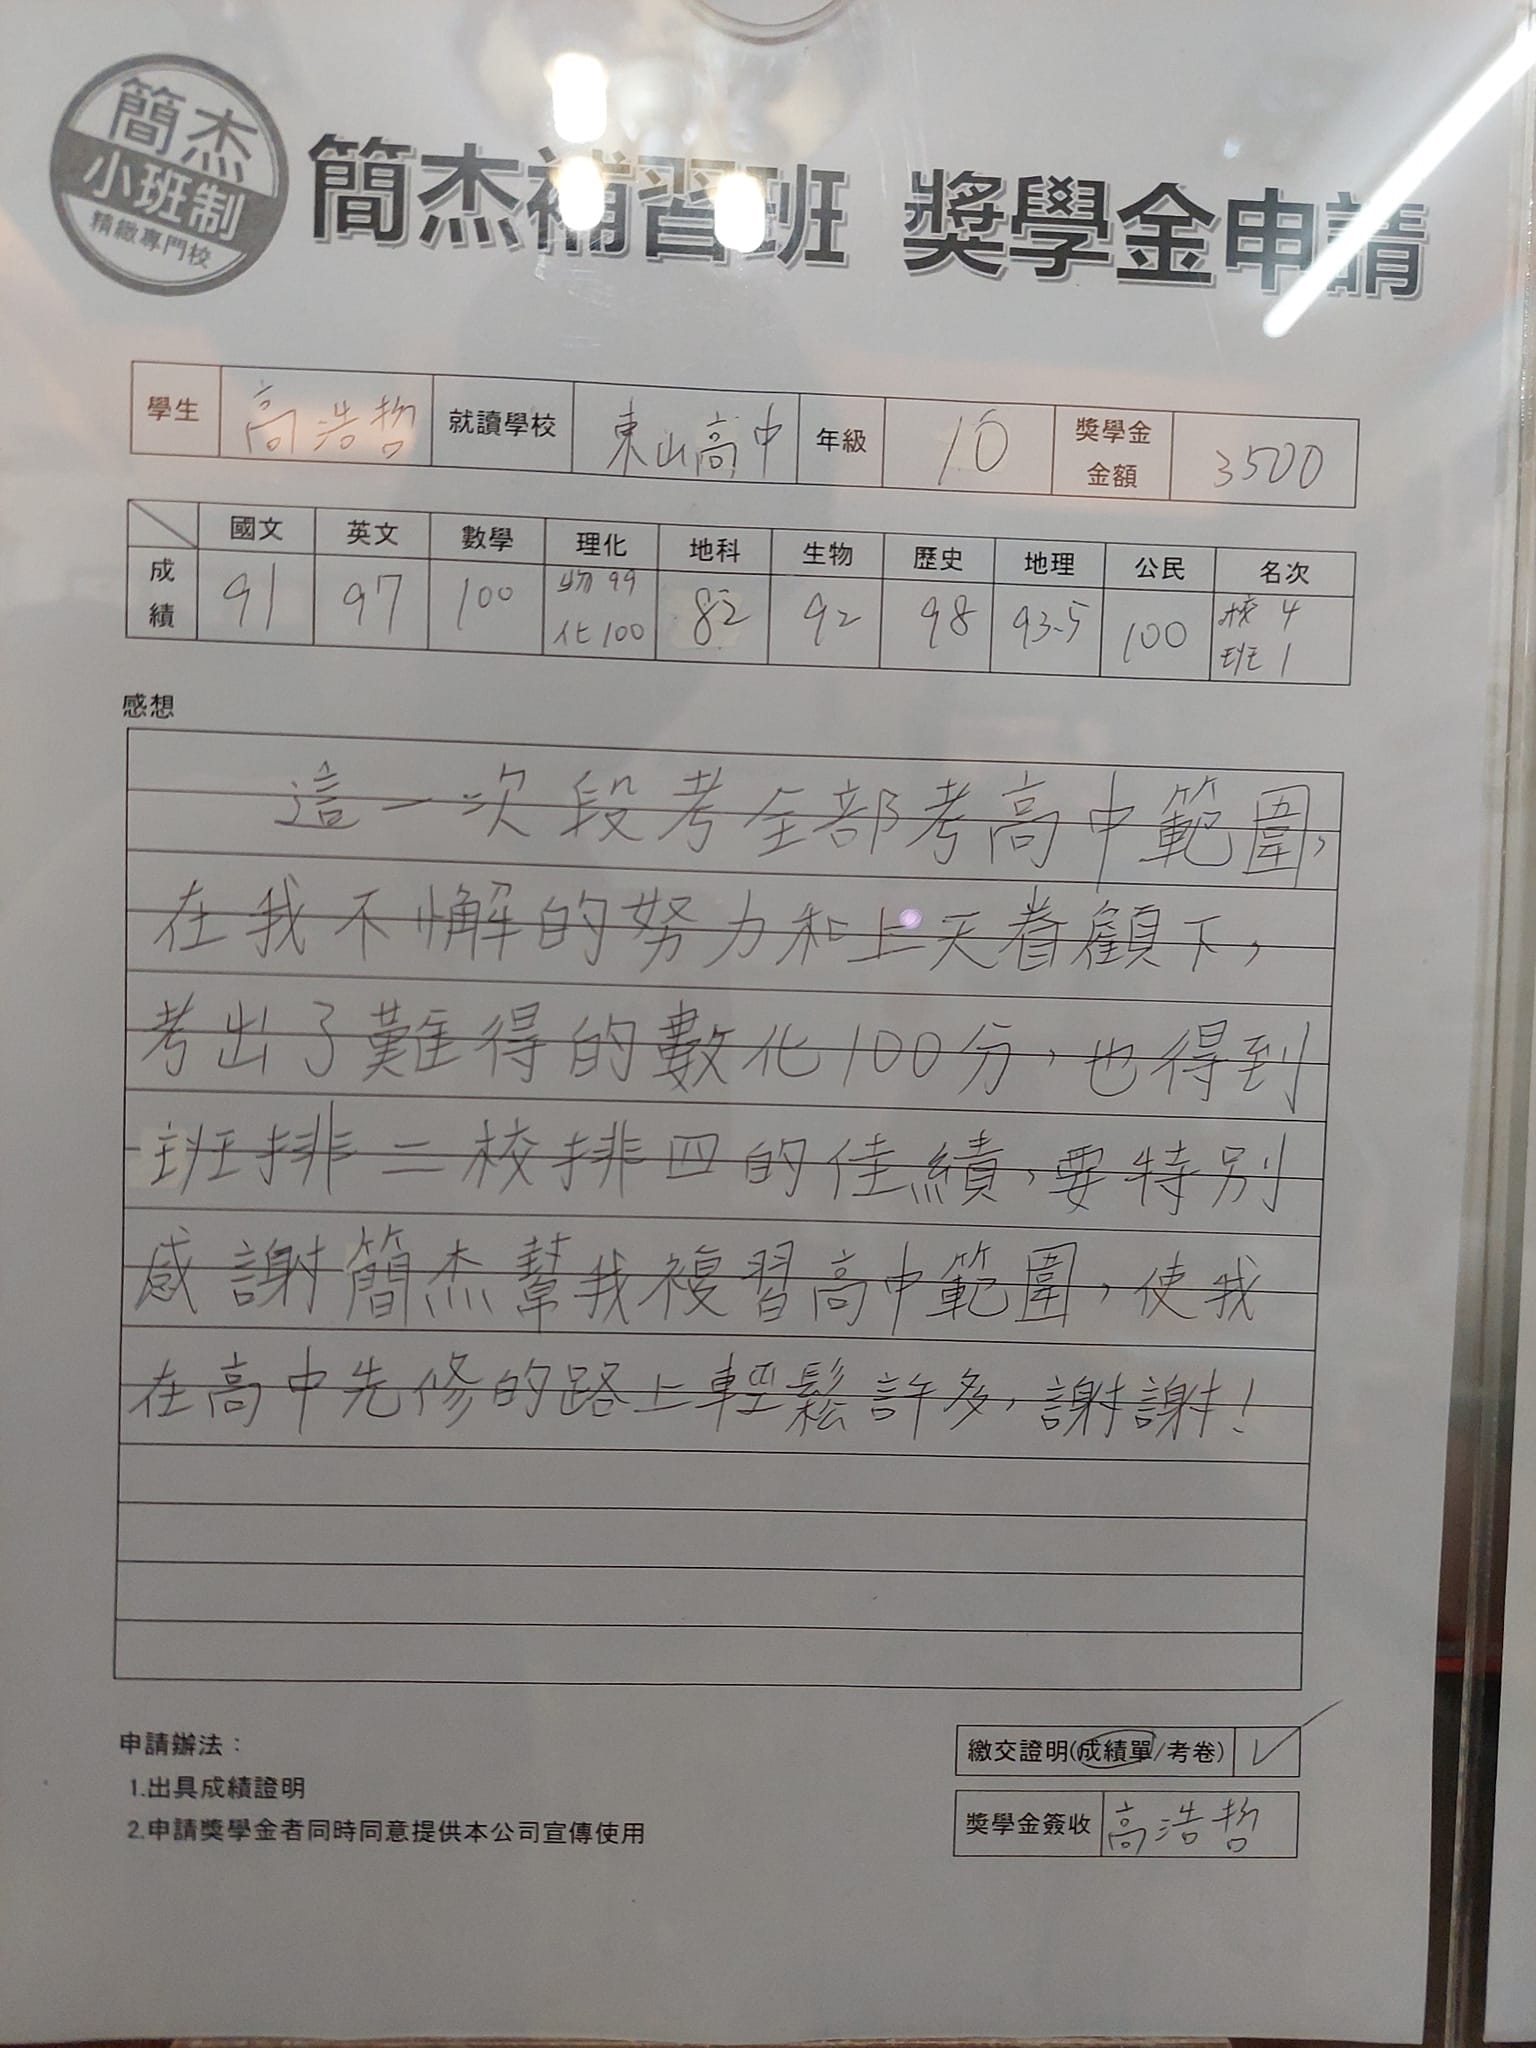 簡杰
小班制
精緻專門校
簡杰補習班 獎學金申請
學生 高浩哲 就讀學校 東山高中 年級 10 獎學金金額 3500
國文 英文 數學 理化 地科 生物 歷史 地理 公民 名次
成績 91 97 100 物99 化100 82 92 98 93.5 100 校4 班1
感想
這一次段考全部考高中範圍,
在我不懈的努力和上天眷顧下,
考出了難得的數化100分,也得到
班排一校排四的佳績,要特別
感謝簡杰幫我複習高中範圍,使我
在高中先修的路上輕鬆許多,謝謝!
申請辦法:
1.出具成績證明
2.申請獎學金者同時同意提供本公司宣傳使用
繳交證明(成績單/考卷) ✓
獎學金簽收 高浩哲